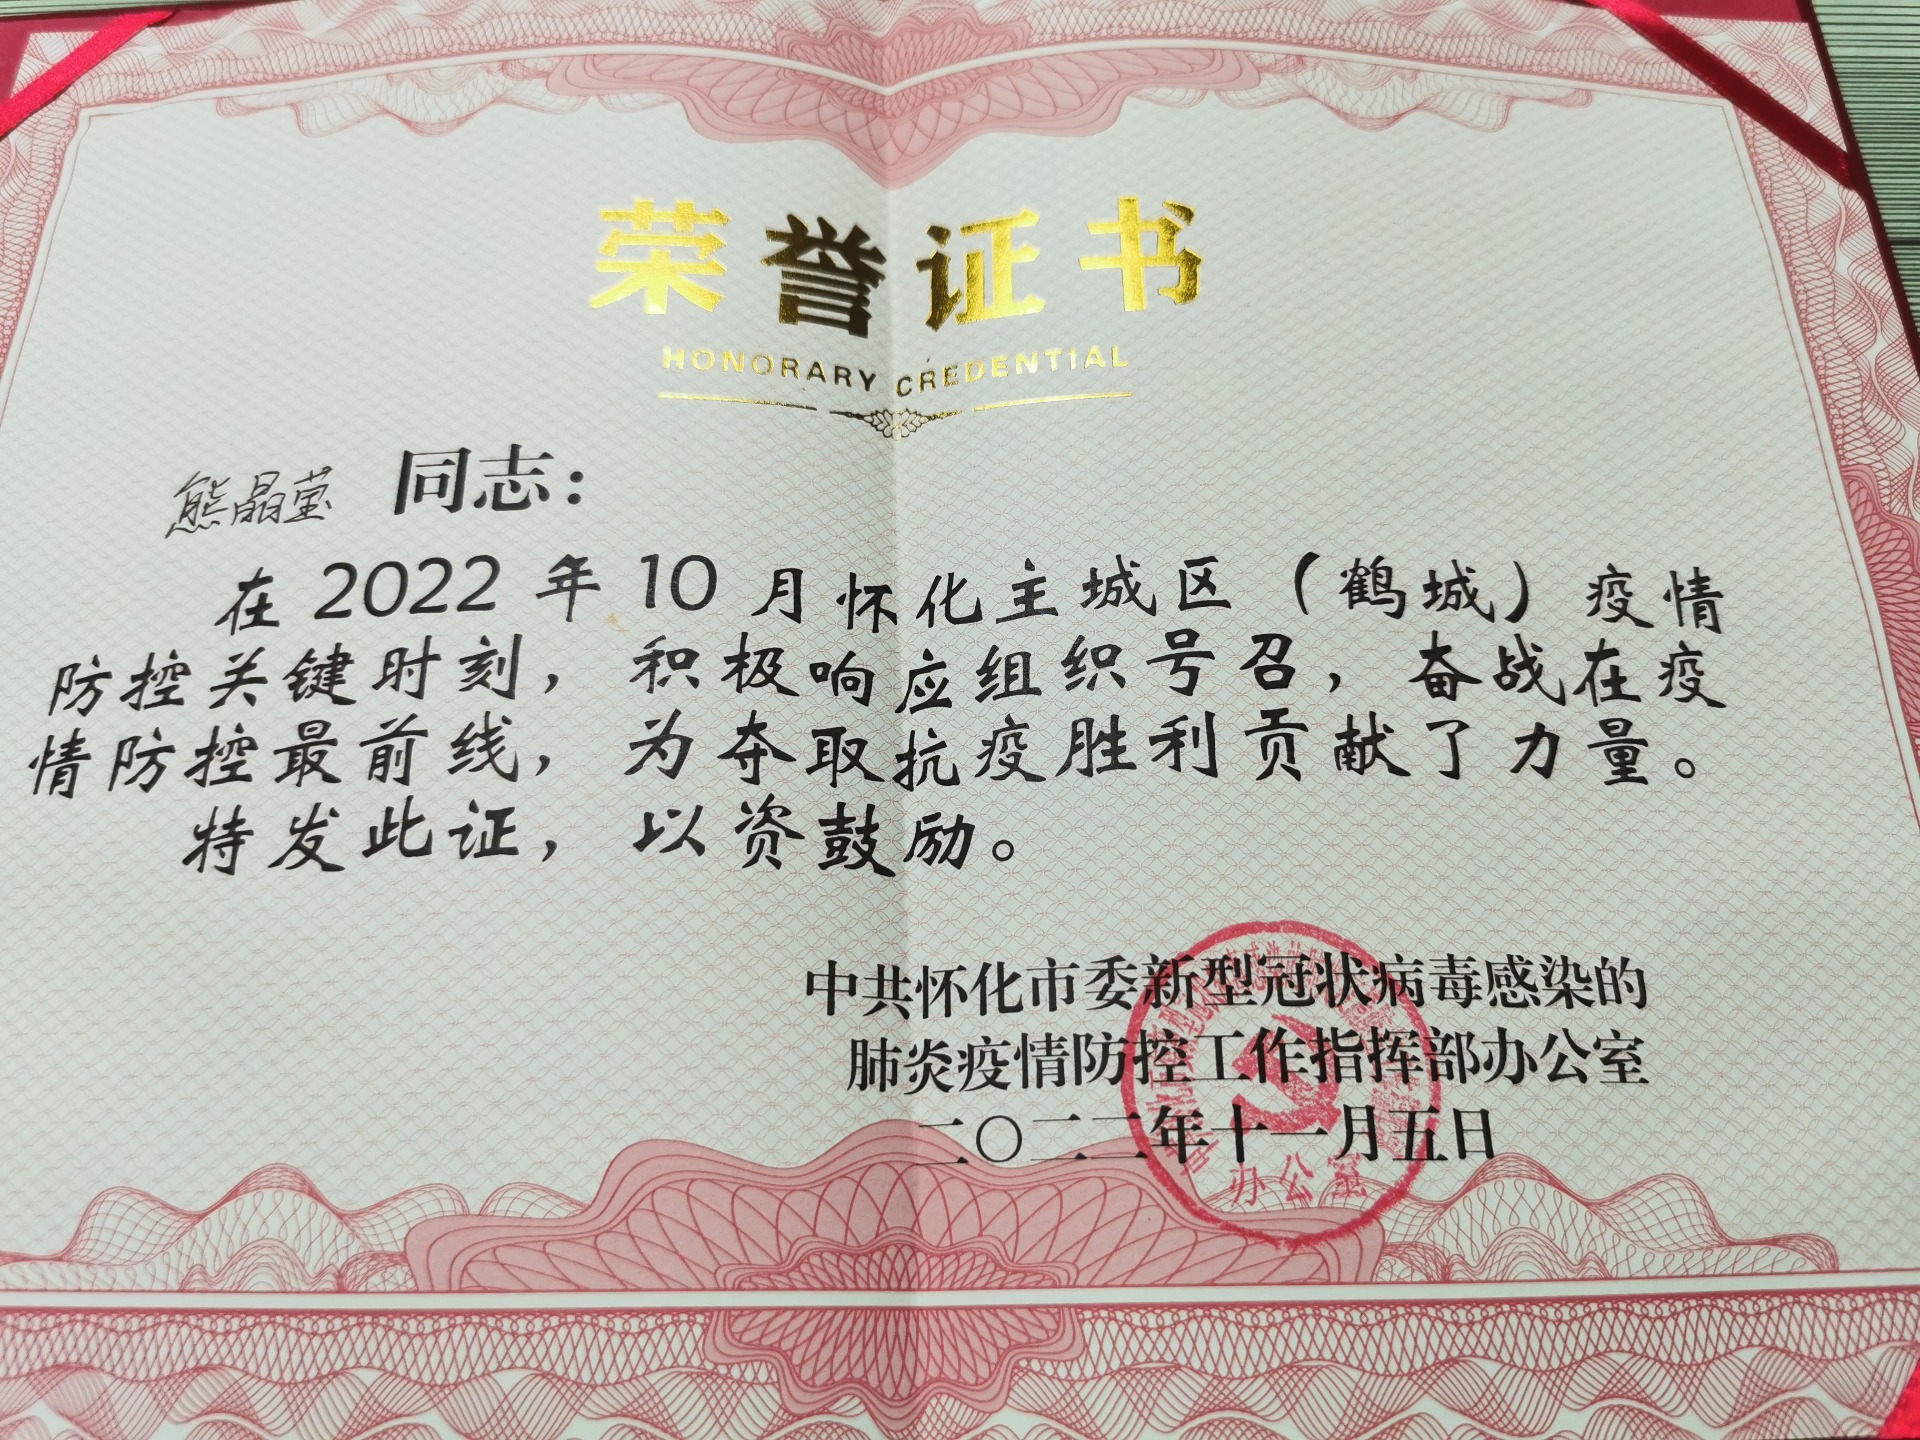 荣誉证书
HONORARY CREDENTIAL
熊晶莹 同志：
在 2022 年 10 月怀化主城区（鹤城）疫情
防控关键时刻，积极响应组织号召，奋战在疫
情防控最前线，为夺取抗疫胜利贡献了力量。
特发此证，以资鼓励。
中共怀化市委新型冠状病毒感染的
肺炎疫情防控工作指挥部办公室
二〇二二年十一月五日
办公室